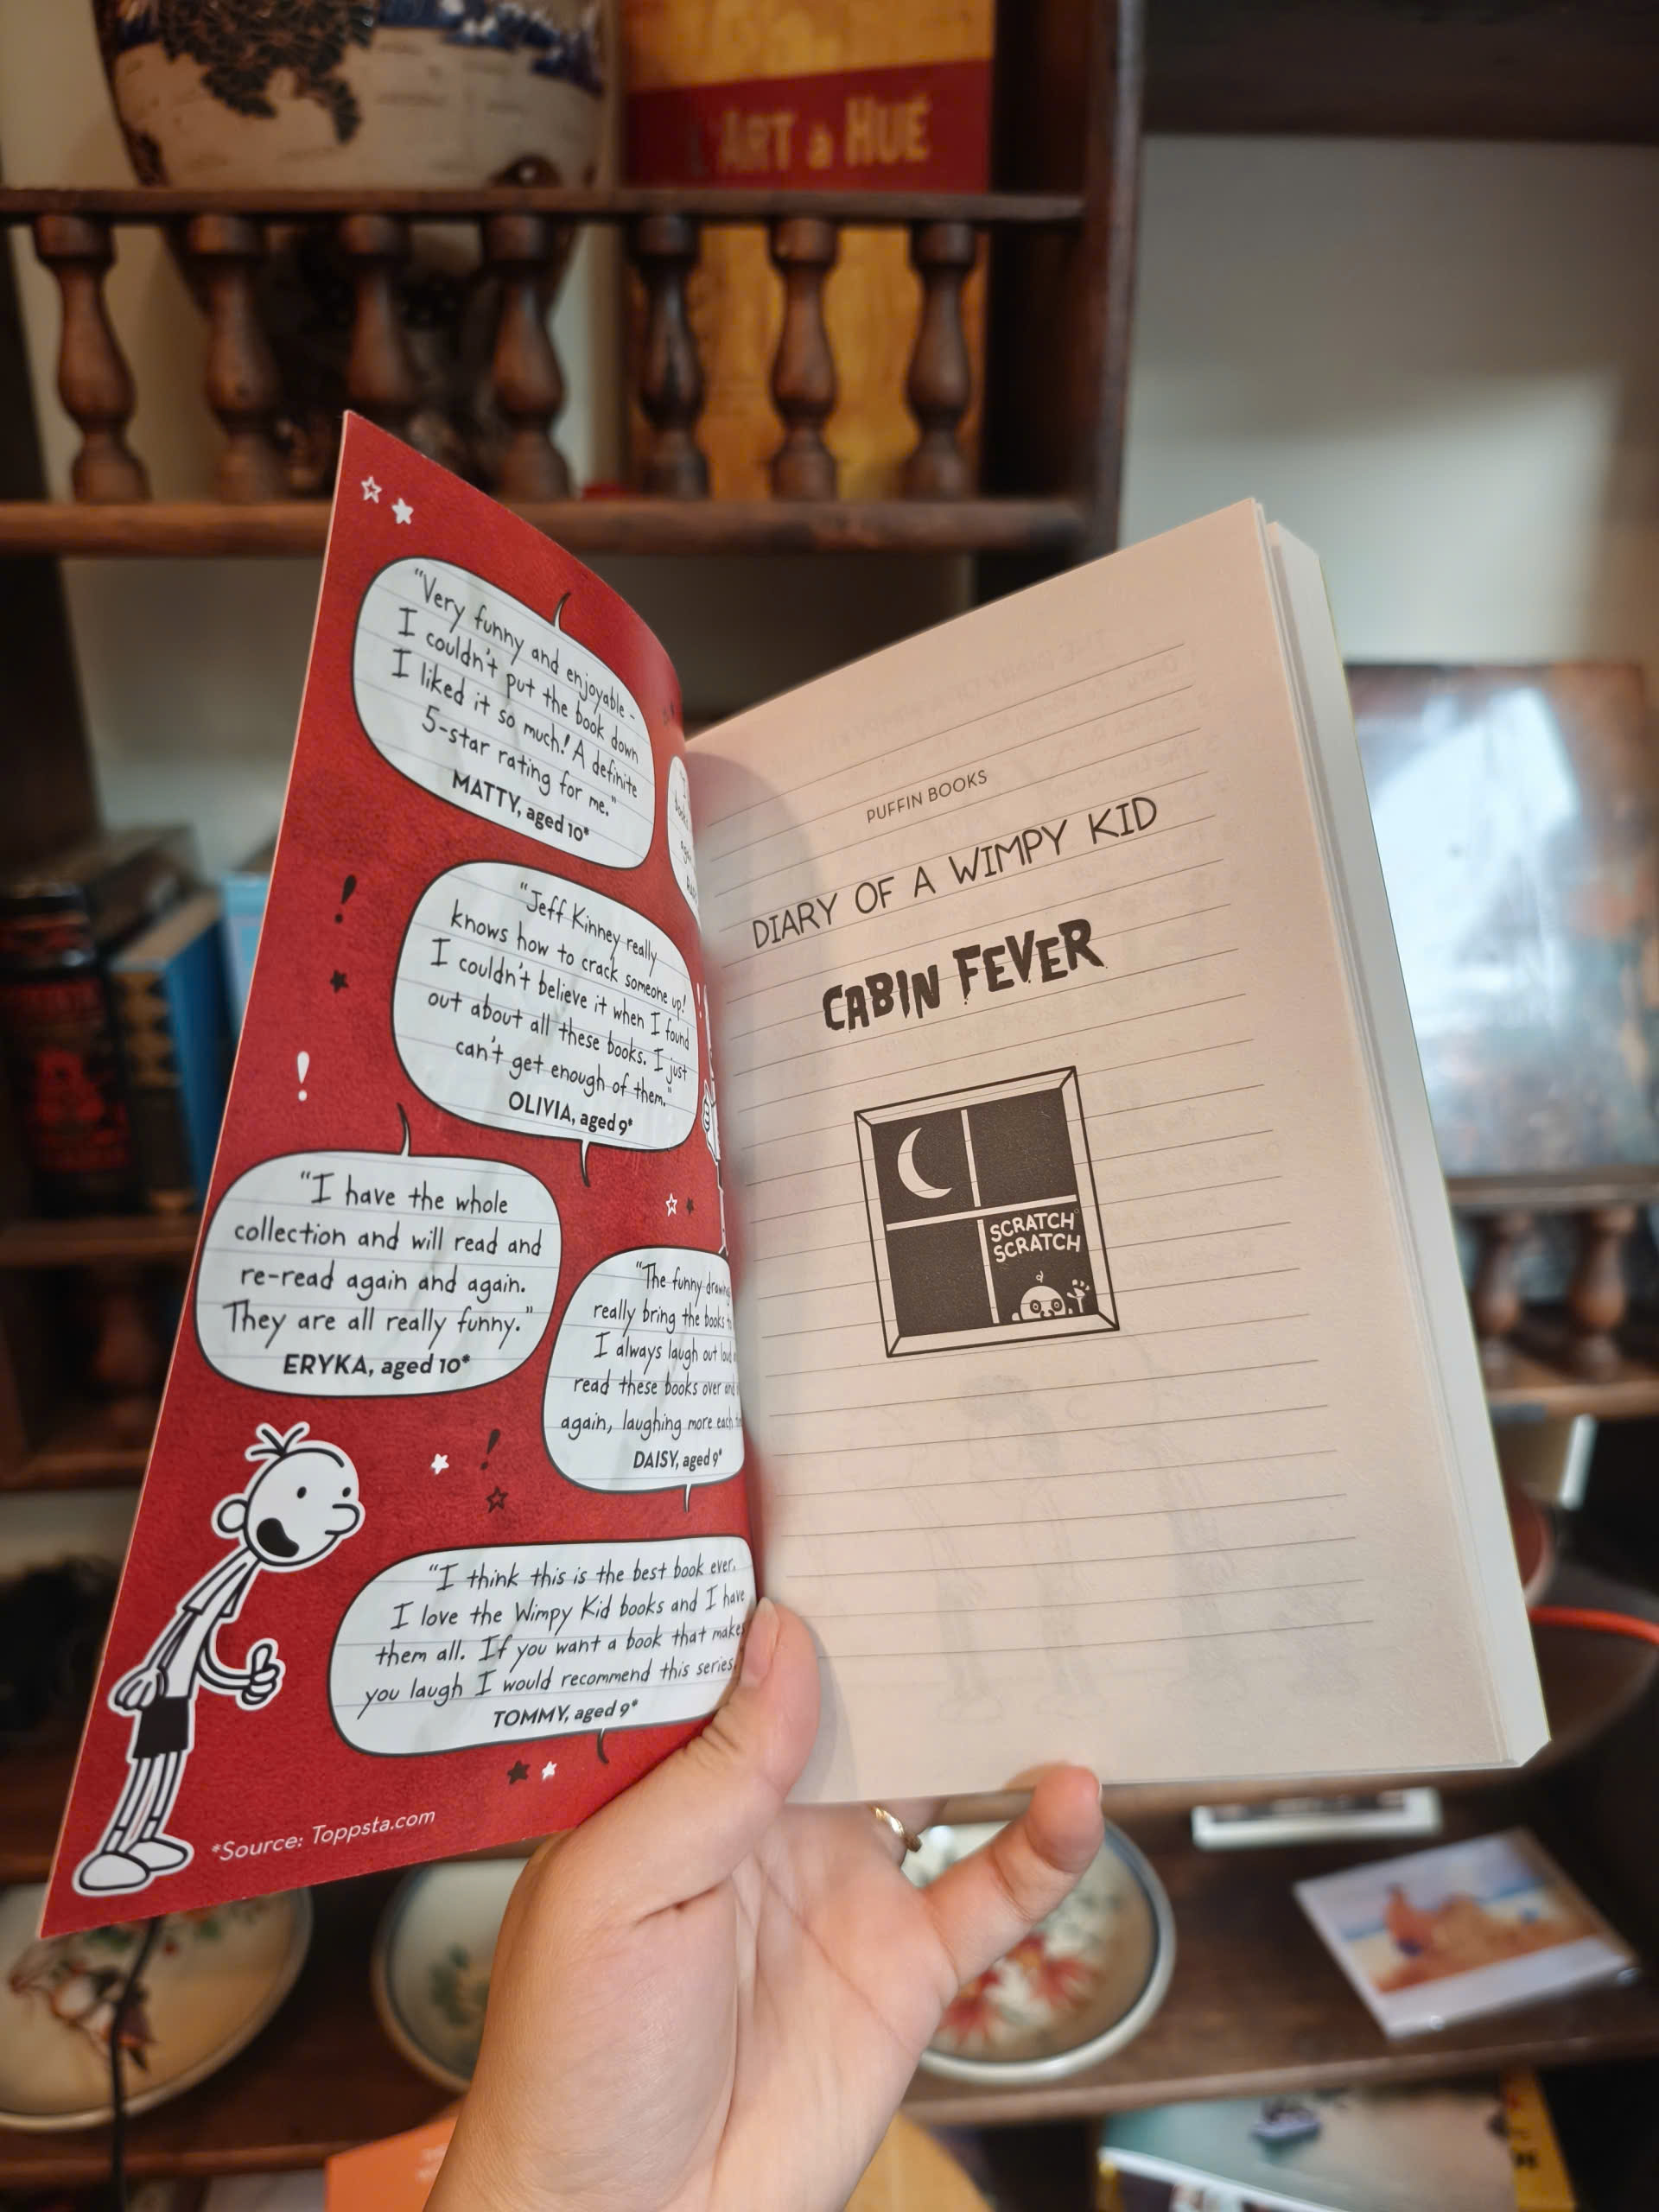 L'ART à HUÉ
"Very funny and enjoyable -
I couldn't put the book down
I liked it so much! A definite
5-star rating for me."
MATTY, aged 10*
"Jeff Kinney really
knows how to crack someone up!
I couldn't believe it when I found
out about all these books. I just
can't get enough of them."
OLIVIA, aged 9*
"I have the whole
collection and will read and
re-read again and again.
They are all really funny."
ERYKA, aged 10*
"The funny
really bring the books
I always laugh out
read these books over
again, laughing more
DAISY, aged 9*
"I think this is the best book ever.
I love the Wimpy Kid books and I have
them all. If you want a book that makes
you laugh I would recommend this series.
TOMMY, aged 9*
*Source: Toppsta.com
PUFFIN BOOKS
DIARY OF A WIMPY KID
CABIN FEVER
SCRATCH
SCRATCH